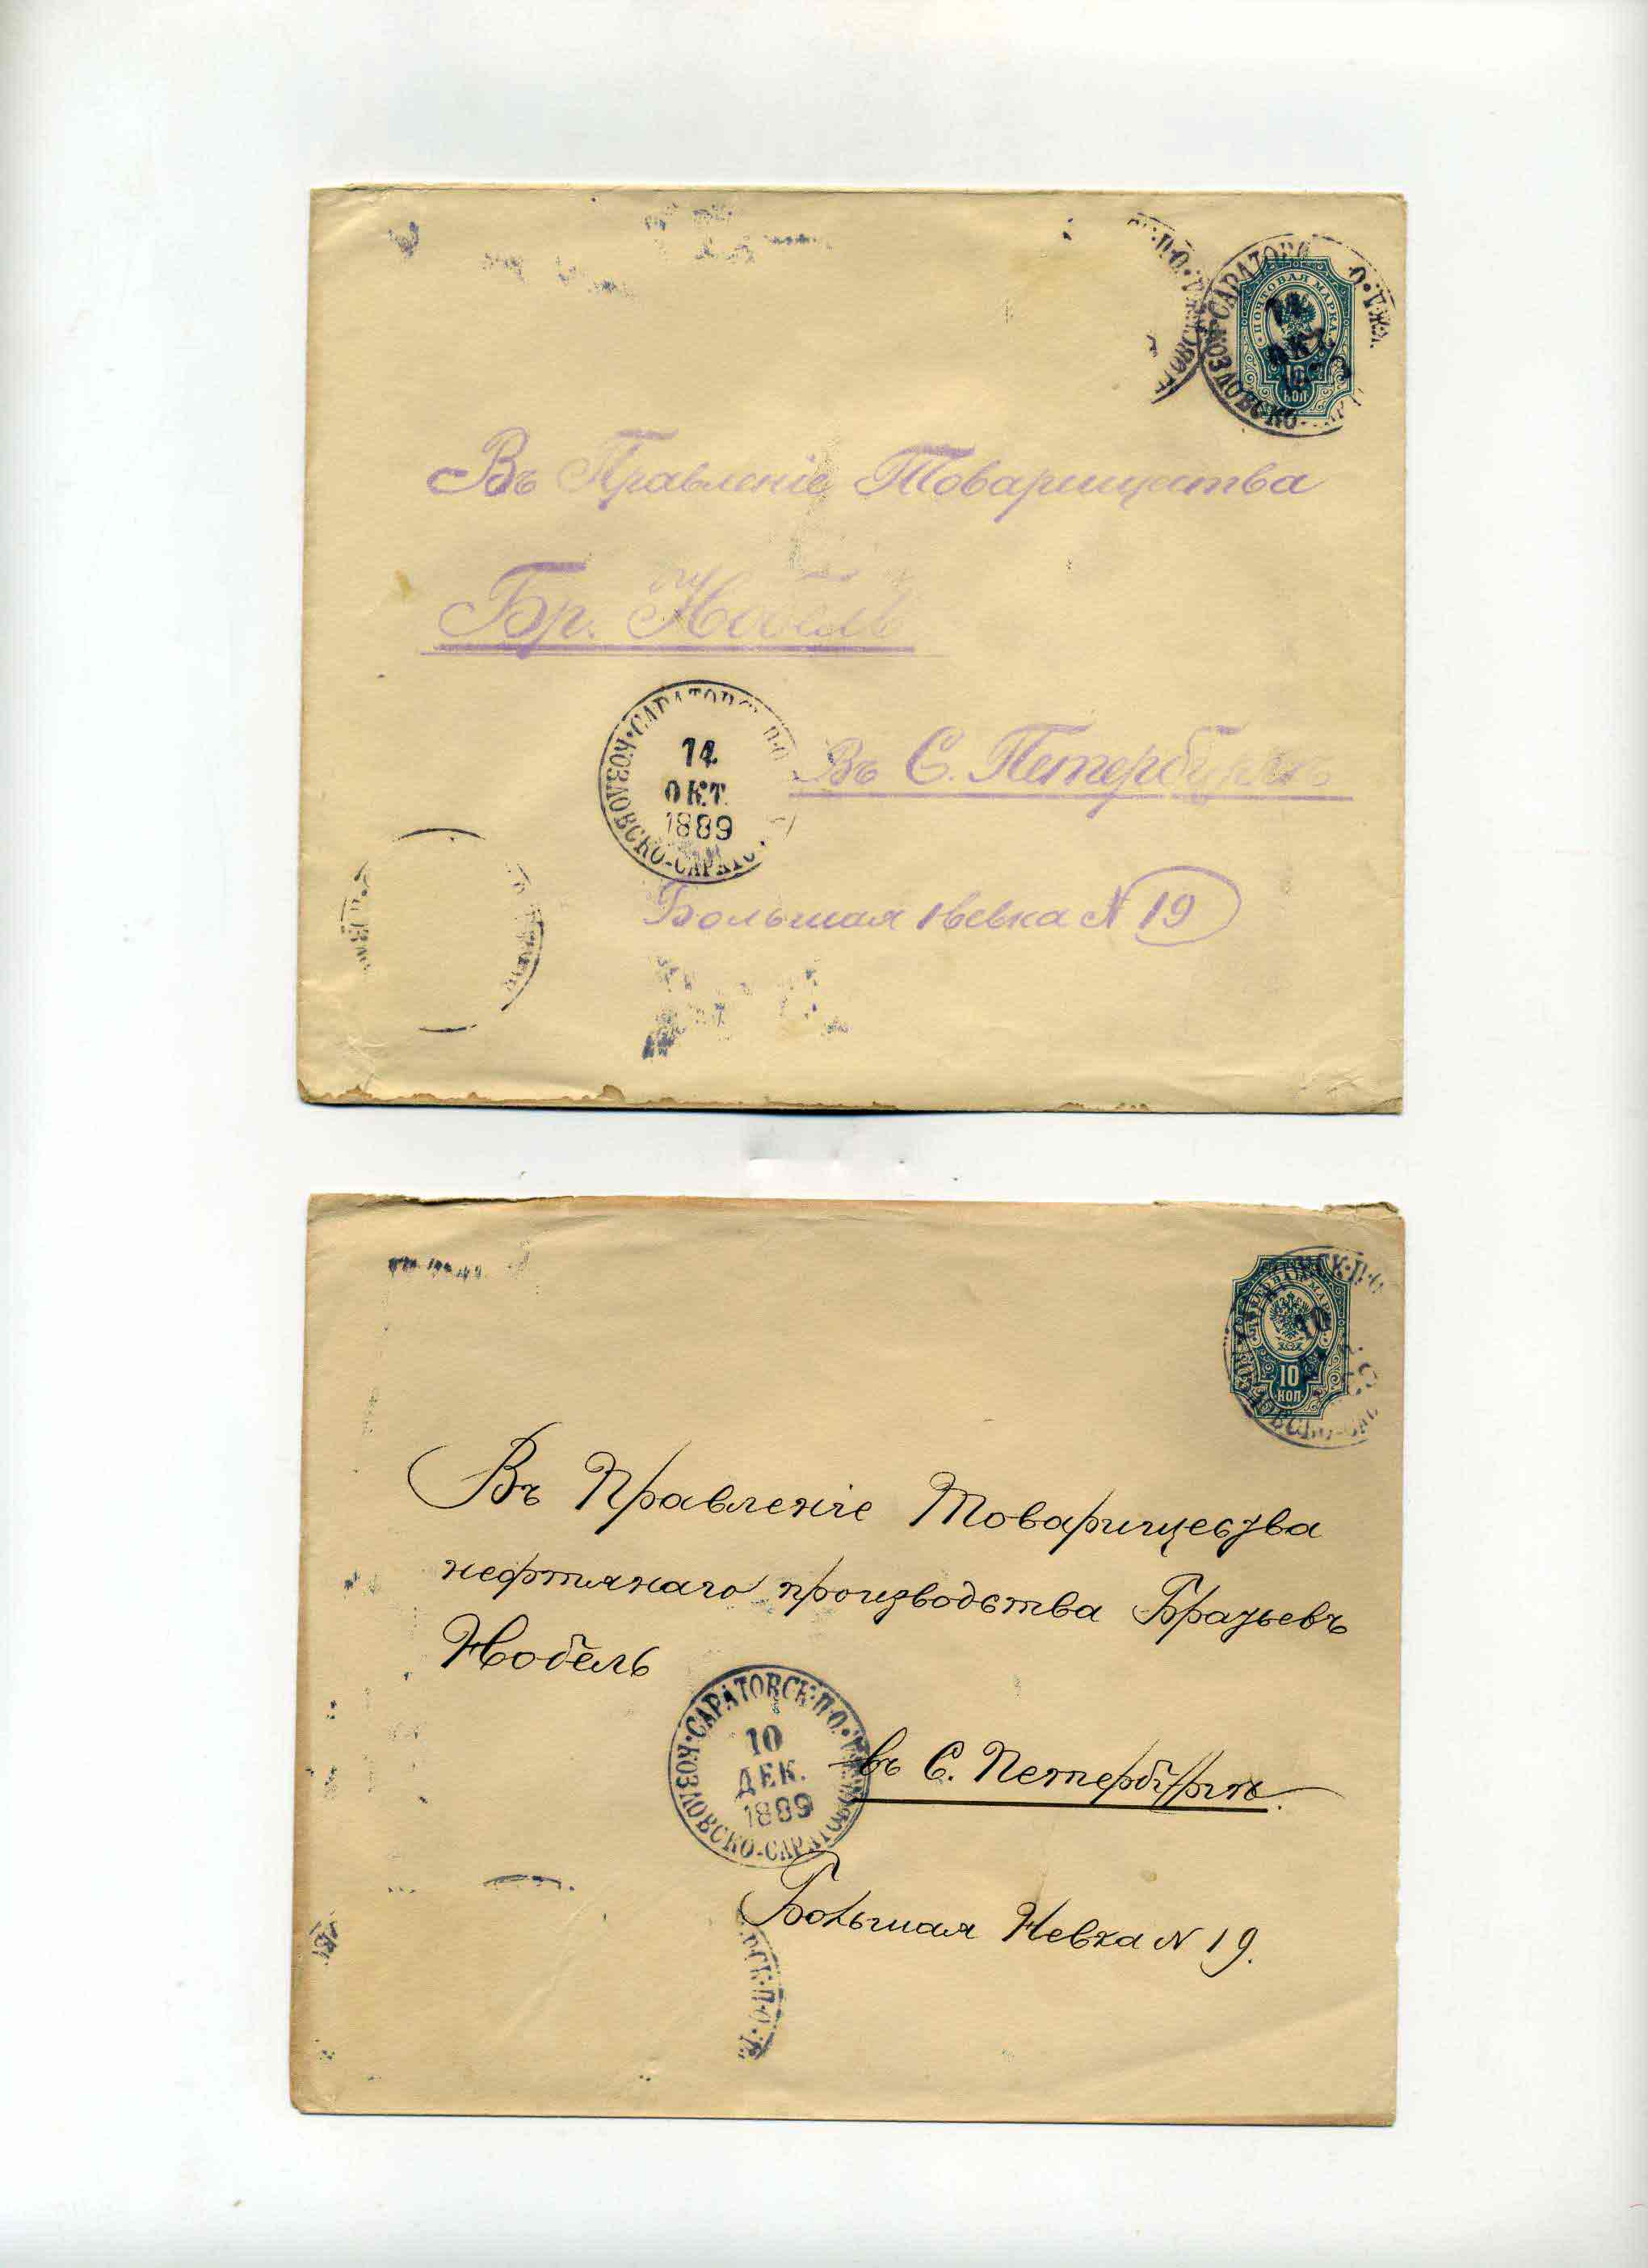 ПОЧТОВАЯ МАРКА
10
КОП
Въ Правленіе Товарищества
Бр. Нобель
КОЗЛОВСКО-САРАТОВСК·П·О
14
ОКТ.
1889
Въ С. Петербургъ
Большая Невка № 19
ПОЧТОВАЯ МАРКА
10
КОП.
Въ Правленіе Товарищества
нефтянаго производства Братьевъ
Нобель
КОЗЛОВСКО-САРАТОВ
КОЗЛОВ·САРАТОВСК·П·О·
10
ДЕК.
1889
въ С. Петербургъ.
Большая Невка № 19.
РСК·П·О·